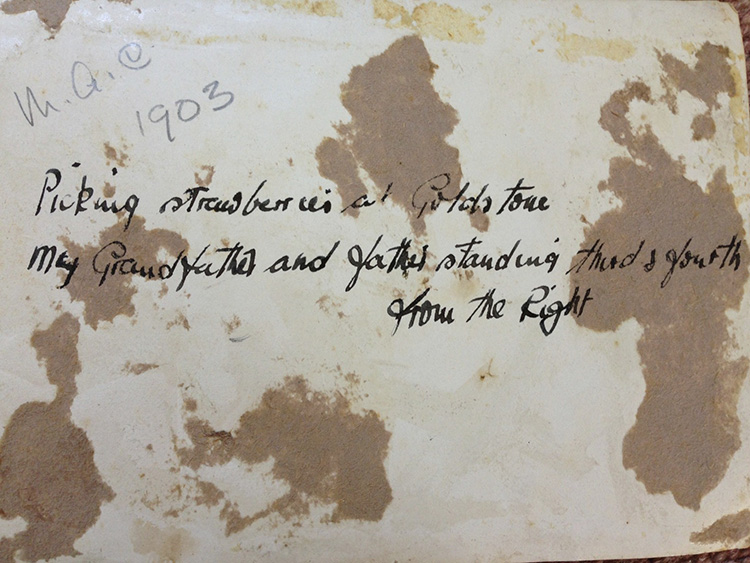 M.A.C
1903
Picking strawberries at Goldstone
My Grandfather and father standing third & fourth
from the Right